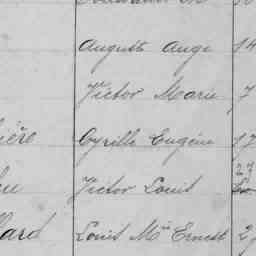 August Ange 14
Victor Marie 7
ière Cyrille Eugène 17
Victor Louis 27
lard Louis Mie Ernest 2